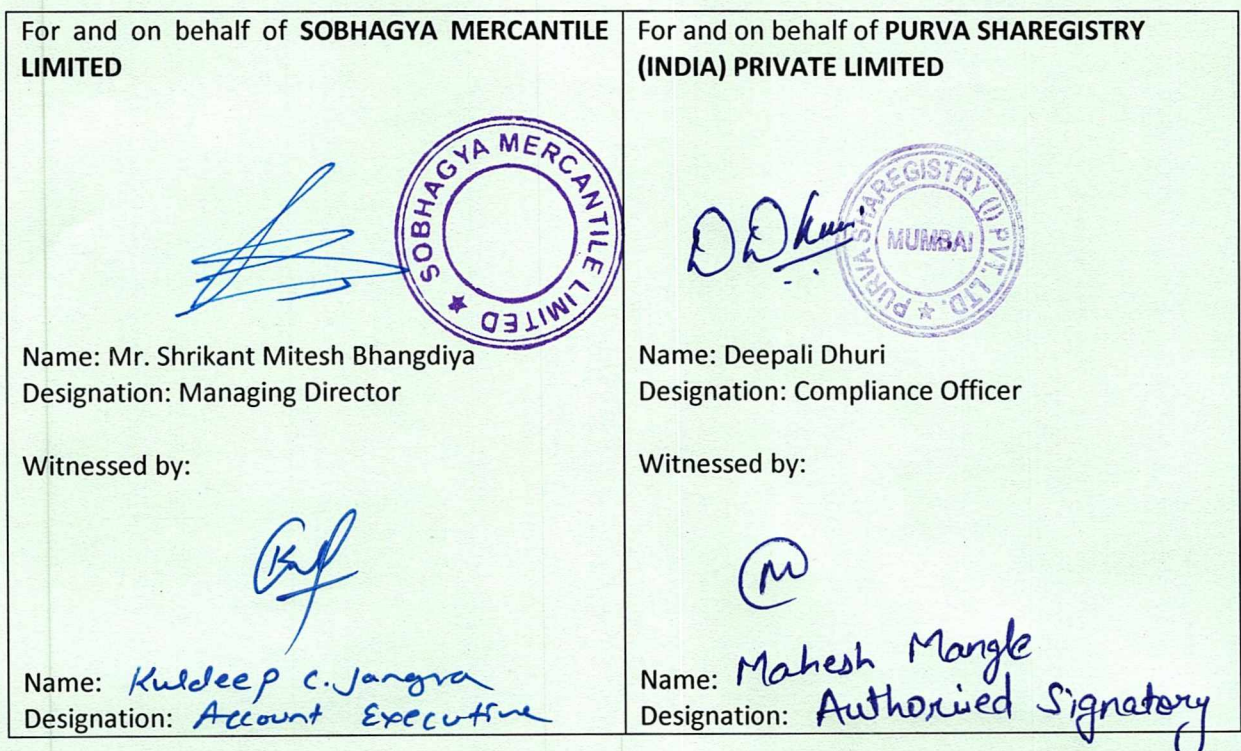 For and on behalf of SOBHAGYA MERCANTILE
LIMITED
SOBHAGYA MERCANTILE LIMITED ★
Name: Mr. Shrikant Mitesh Bhangdiya
Designation: Managing Director
Witnessed by:
Name: Kuldeep C. Jangra
Designation: Account Executive
For and on behalf of PURVA SHAREGISTRY
(INDIA) PRIVATE LIMITED
DDhuri
PURVA SHAREGISTRY (I) PVT. LTD. ★
MUMBAI
Name: Deepali Dhuri
Designation: Compliance Officer
Witnessed by:
M
Name: Mahesh Mangle
Designation: Authorised Signatory